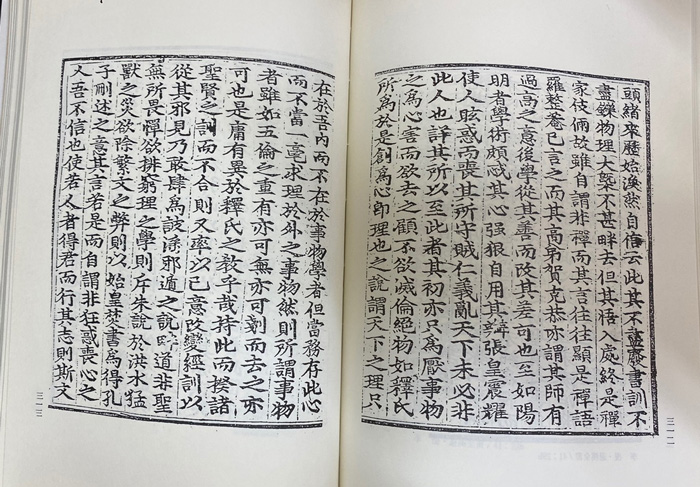 頭緖來歷始渙然自信云此其不盡廢書訓不
盡鑠物理大槩不甚畔去但其悟入處終是禪
家伎倆故雖自謂非禪而其言往往顯是禪語
羅整菴已言之而其高弟賀克恭亦謂其師有
過高之意後學從其善而改其差可也至如陽
明者學術頗忒其心强狠自用其辯張皇震耀
使人眩惑而喪其所守賊仁義亂天下未必非
此人也詳其所以至此者其初亦只爲厭事物
之爲心害而欲去之顧不欲滅倫絶物如釋氏
所爲於是創爲心卽理也之說謂天下之理只
在於吾內而不在於事物學者但當務存此心
而不當一毫求理於外之事物然則所謂事物
者雖如五倫之重有亦可無亦可剗而去之亦
可也是庸有異於釋氏之敎乎哉持此而揆諸
聖賢之訓而不合則又率以己意改變經訓以
從其邪見乃敢肆爲詖淫邪遁之說畔道非聖
無所畏憚欲排窮理之學則斥朱說於洪水猛
獸之災欲除繁文之弊則以始皇焚書爲得孔
子刪述之意其言若是而自謂非狂惑喪心之
人吾不信也使若人者得君而行其志則斯文